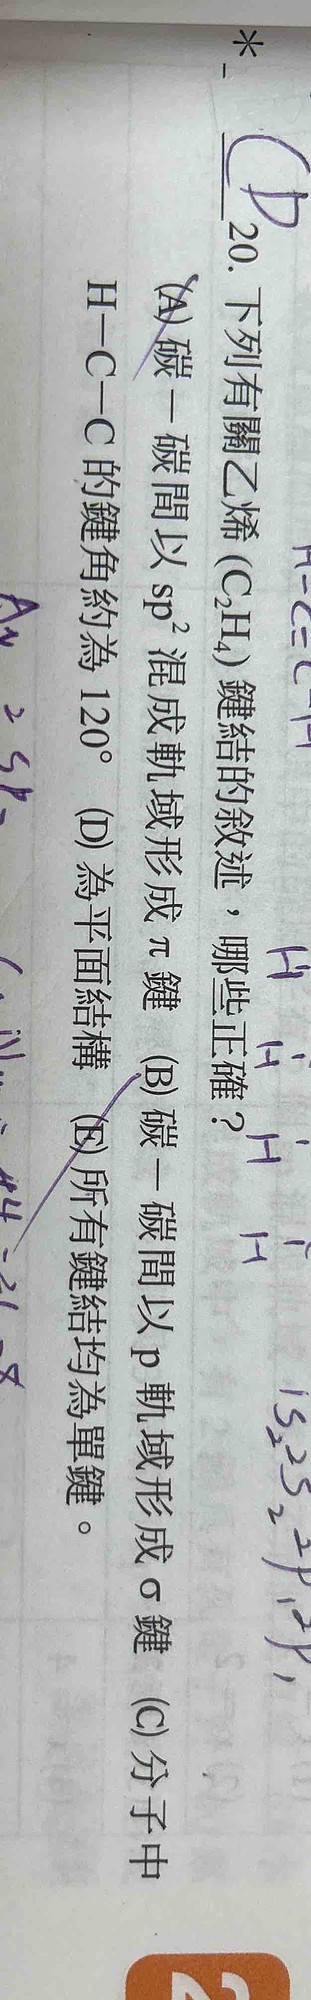 *
CD 20. 下列有關乙烯 (C₂H₄) 鍵結的敘述，哪些正確？
(A) 碳－碳間以 sp² 混成軌域形成 π 鍵 (B) 碳－碳間以 p 軌域形成 σ 鍵 (C) 分子中
H－C－C 的鍵角約為 120° (D) 為平面結構 (E) 所有鍵結均為單鍵。
H-C=C-H
H H H H
2